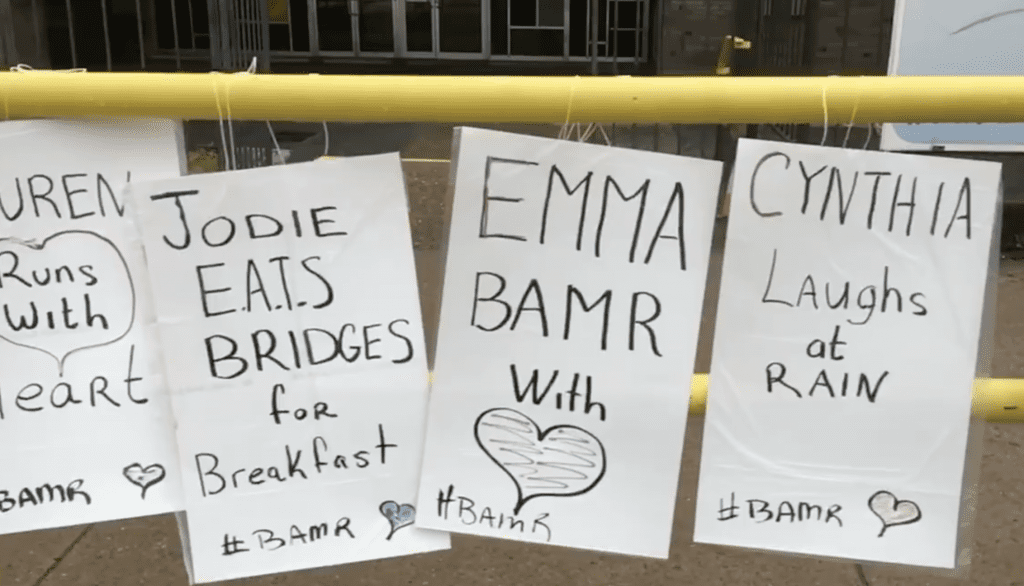 UREN
Runs
With
Heart
BAMR
JODIE
E.A.T.S
BRIDGES
foR
Breakfast
#BAMR
EMMA
BAMR
With
#BAMR
CYNTHIA
Laughs
at
RAIN
#BAMR